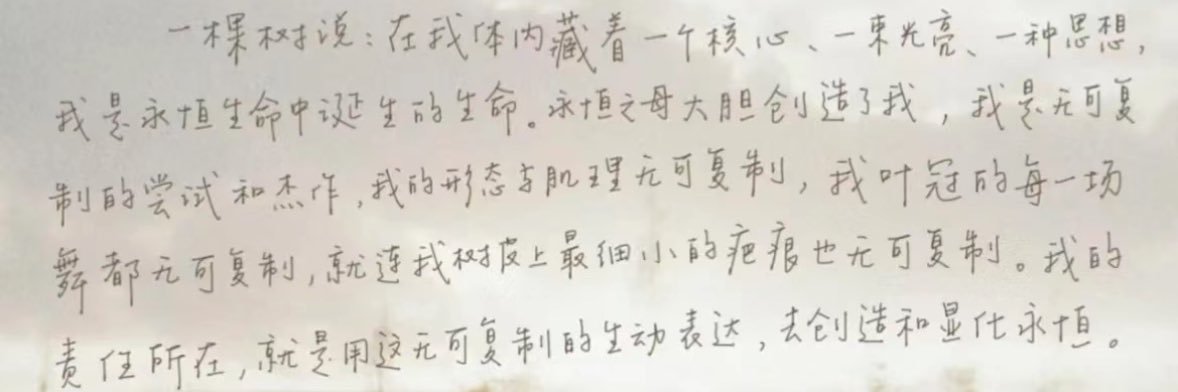 一棵树说：在我体内藏着一个核心、一束光亮、一种思想，
我是永恒生命中诞生的生命。永恒之母大胆创造了我，我是无可复
制的尝试和杰作，我的形态与肌理无可复制，我叶冠的每一场
舞都无可复制，就连我树皮上最细小的疤痕也无可复制。我的
责任所在，就是用这无可复制的生动表达，去创造和显化永恒。